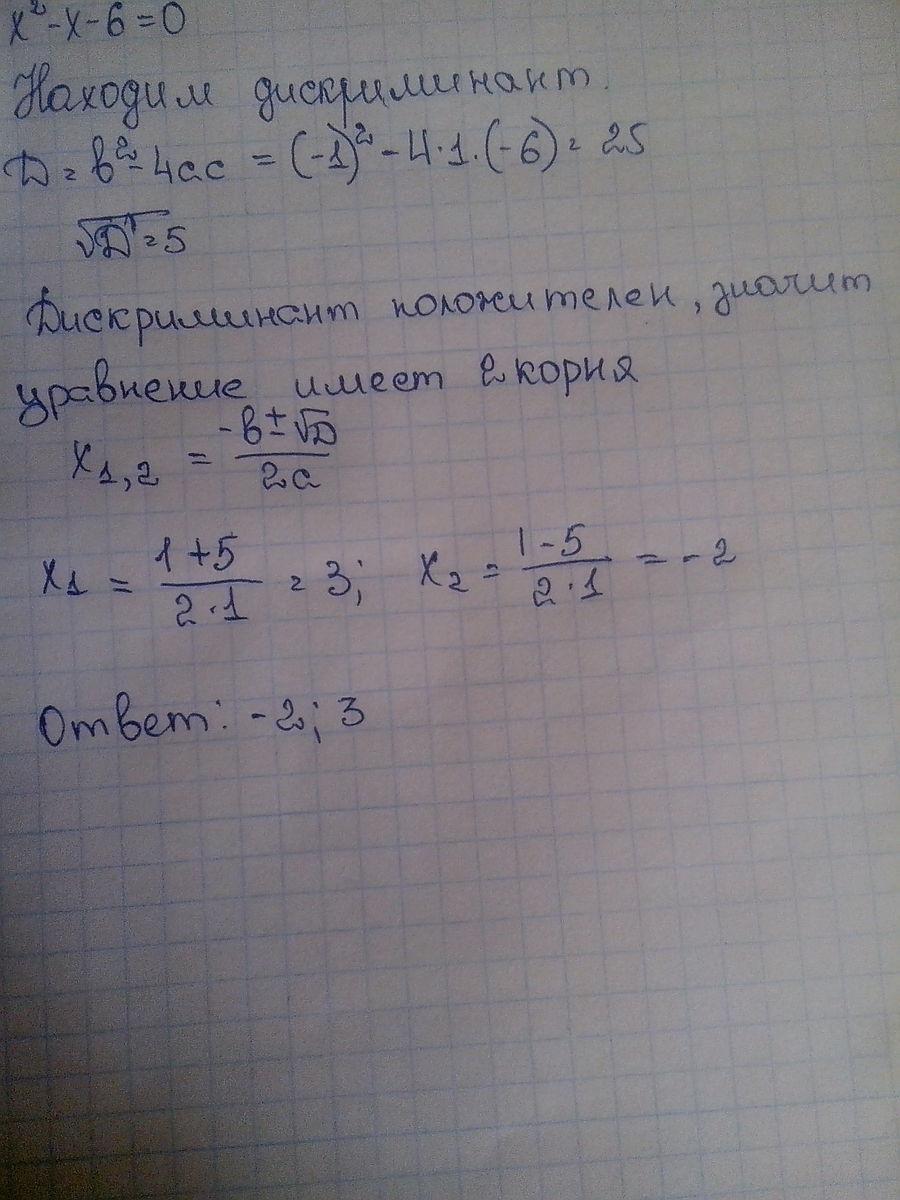 x²-x-6=0
Находим дискриминант.
D=b²-4ac=(-1)²-4·1·(-6)=25
√D=5
Дискриминант положителен, значит
уравнение имеет 2 корня
x₁,₂ = (-b±√D)/(2a)
x₁ = (1+5)/(2·1) = 3; x₂ = (1-5)/(2·1) = -2
Ответ: -2; 3